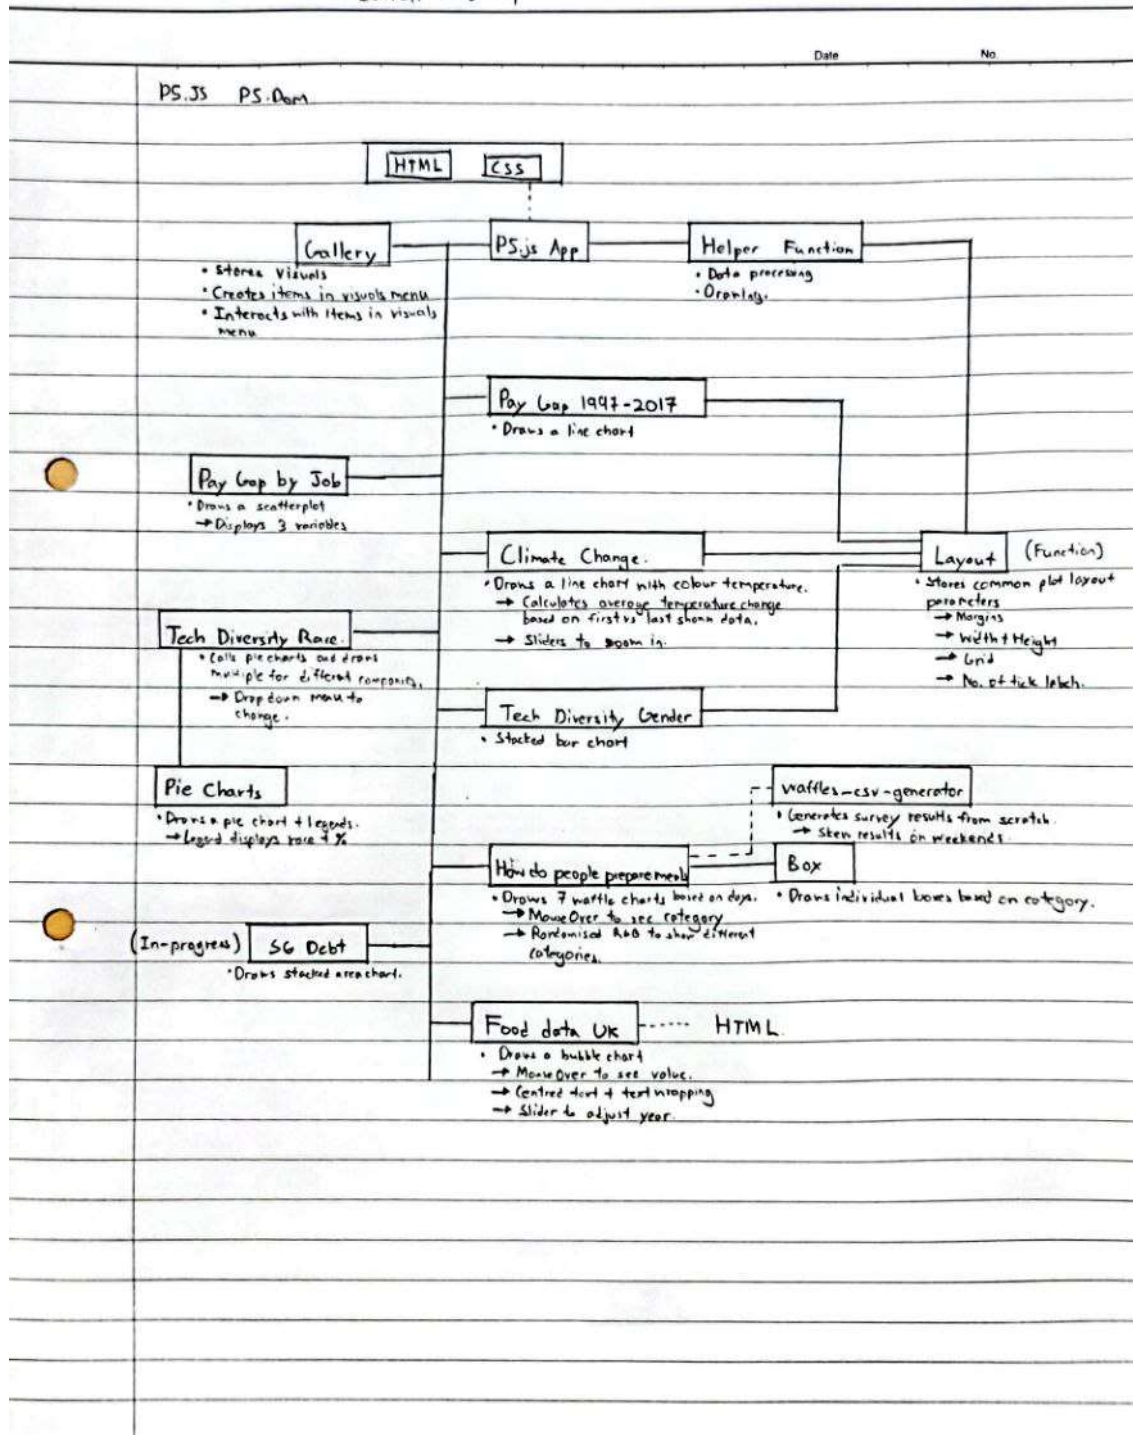 Date No.
P5.JS P5.Dom
HTML CSS
Gallery
P5.js App
Helper Function
• Stores Visuals
• Creates items in visuals menu
• Interacts with items in visuals
menu
• Data processing
• Drawings.
Pay Gap 1997-2017
• Draws a line chart
Pay Gap by Job
• Draws a scatterplot
→ Displays 3 variables
Climate Change.
• Draws a line chart with colour temperature.
→ Calculates average temperature change
based on first vs last shown data.
→ Sliders to zoom in.
Layout (Function)
• Stores common plot layout
parameters
→ Margins
→ Width + Height
→ Grid
→ No. of tick labels.
Tech Diversity Race.
• Calls pie charts and draws
multiple for different companies.
→ Drop down menu to
change.
Tech Diversity Gender
• Stacked bar chart
Pie Charts
• Draws a pie chart + legends.
→ Legend displays race + %
waffles-csv-generator
• Generates survey results from scratch.
→ Skew results on weekends.
How do people prepare meals
• Draws 7 waffle charts based on days.
→ MouseOver to see category
→ Randomised RGB to show different
categories.
Box
• Draws individual boxes based on category.
(In-progress) SG Debt
• Draws stacked area chart.
Food data UK HTML
• Draws a bubble chart
→ MouseOver to see value.
→ Centred text + text wrapping
→ Slider to adjust year.